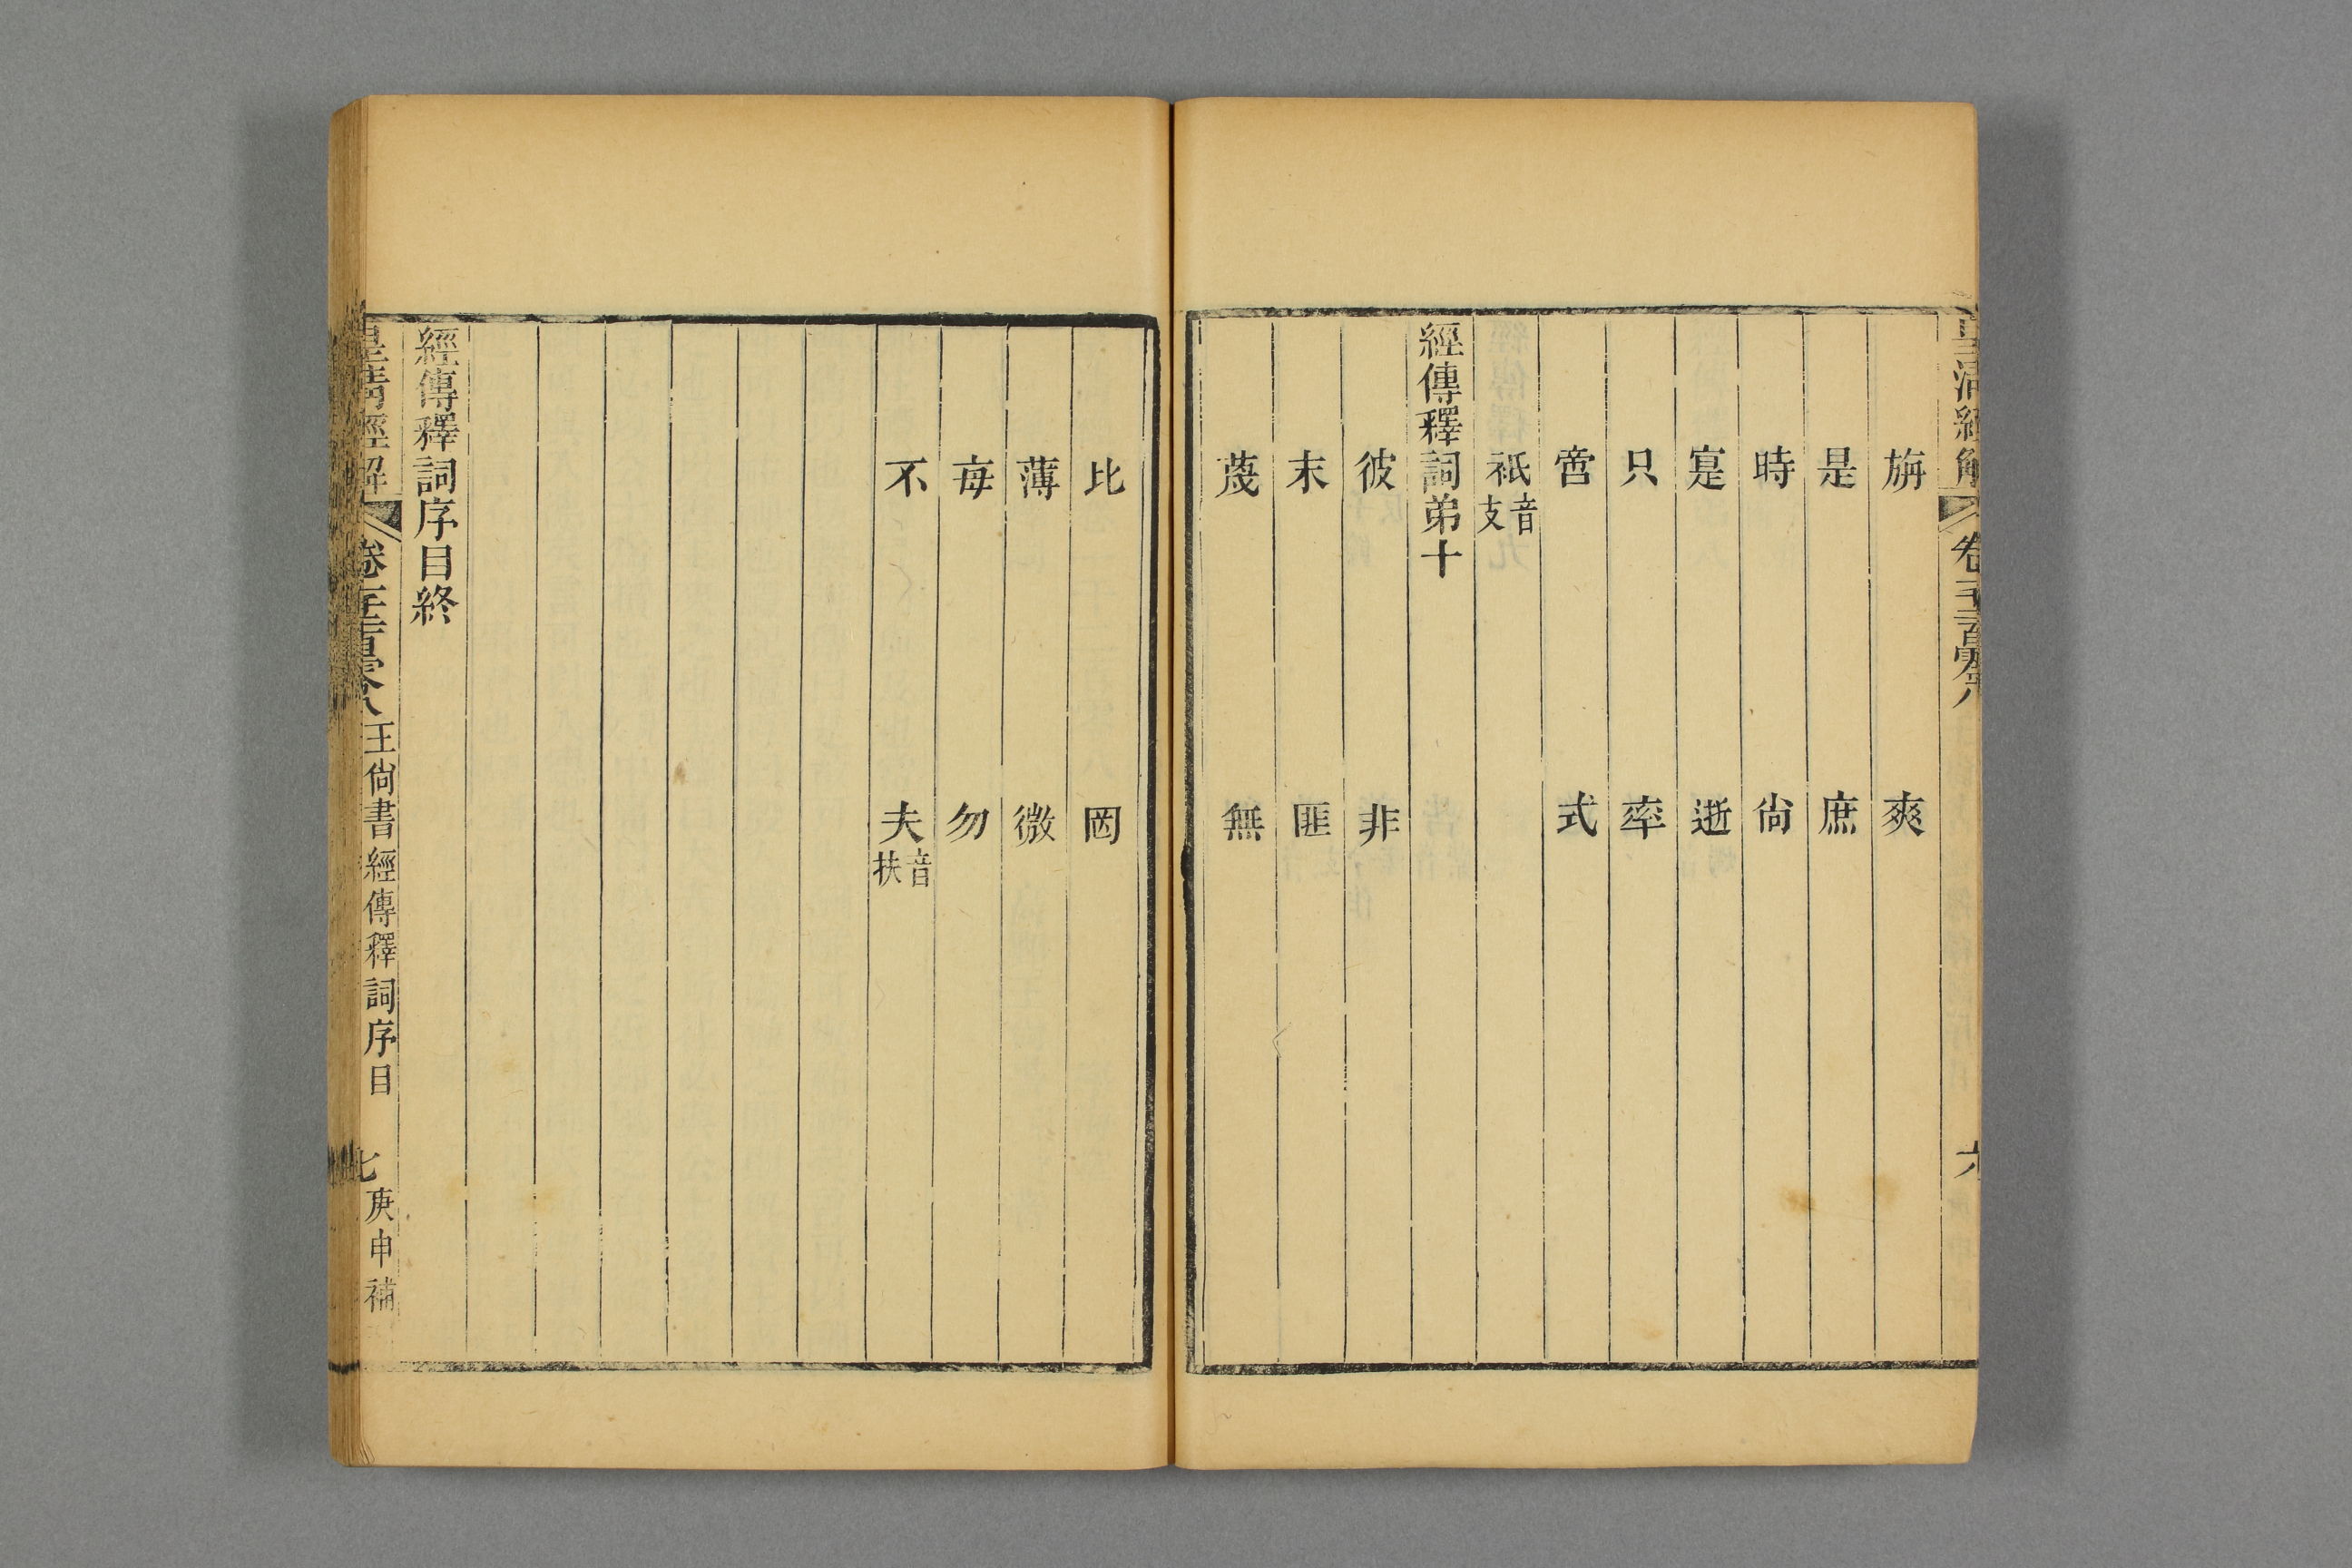 皇清經解 卷一千二百零八 六
旃 爽
是 庶
時 尙
寔 逝
只 率
啻 式
祇音支
經傳釋詞弟十
彼 非
末 匪
蔑 無
比 罔
薄 微
毋 勿
不 夫音扶
經傳釋詞序目終
皇清經解 卷一千二百零八 王尙書經傳釋詞序目 七 庚申補